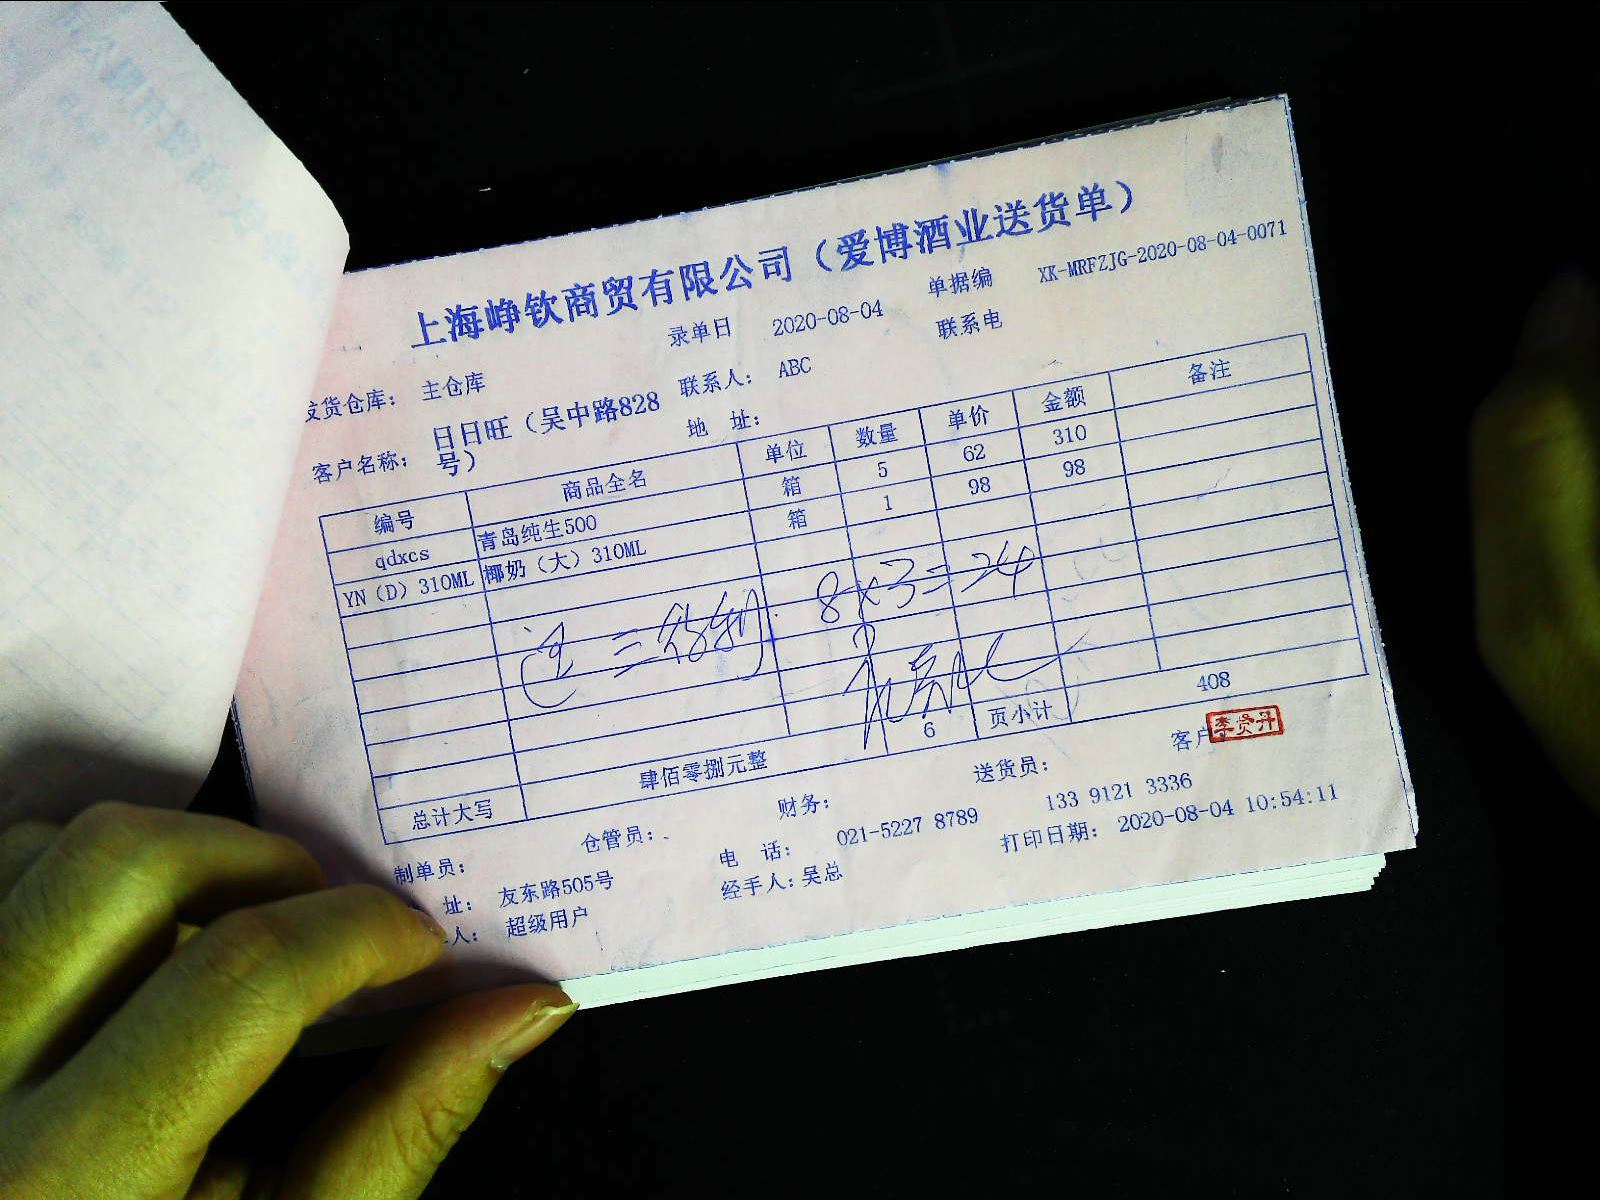 上海峥钦商贸有限公司（爱博酒业送货单）
录单日 2020-08-04 单据编 XK-MRFZJG-2020-08-04-0071
发货仓库： 主仓库 联系人： ABC 联系电
客户名称： 日日旺（吴中路828号） 地 址：
编号 商品全名 单位 数量 单价 金额 备注
qdxcs 青岛纯生500 箱 5 62 310
YN（D）310ML 椰奶（大）310ML 箱 1 98 98
8×3=24
6 页小计 408
总计大写 肆佰零捌元整
制单员： 仓管员： 财务： 送货员： 客户 李贤丹
址： 友东路505号 电 话： 021-5227 8789 133 9121 3336
人： 超级用户 经手人：吴总 打印日期： 2020-08-04 10:54:11